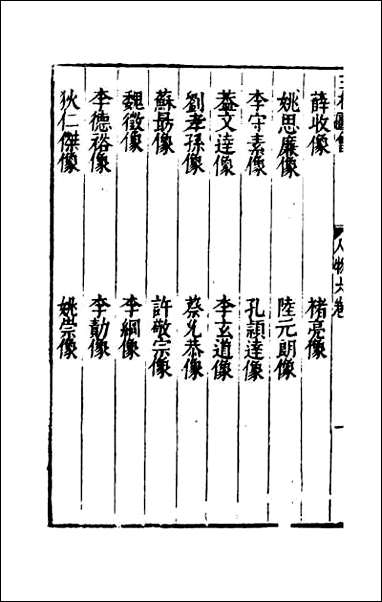 三才圖會 人物六卷 一
薛收像 褚亮像
姚思廉像 陸元朗像
李守素像 孔頴達像
葢文達像 李玄道像
劉孝孫像 蔡允恭像
蘇勗像 許敬宗像
魏徵像 李綱像
李德裕像 李勣像
狄仁傑像 姚崇像